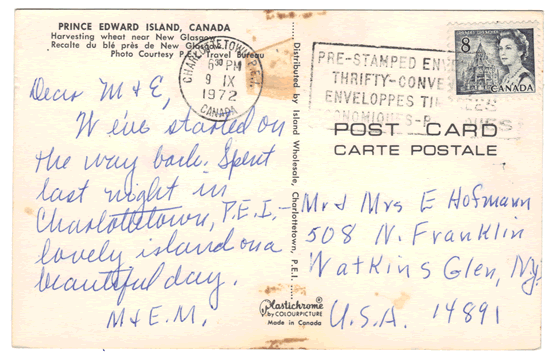 PRINCE EDWARD ISLAND, CANADA
Harvesting wheat near New Glasgow
Recalte du blé près de New Glasgow
Photo Courtesy P.E.I. Travel Bureau
CHARLOTTETOWN, P.E.I.
5³⁰ PM
9 IX
1972
CANADA
PRE-STAMPED ENV
THRIFTY-CONVE
ENVELOPPES TI
8
CANADA
POST CARD
CARTE POSTALE
Dear M & E,
We've started on
the way back. Spent
last night in
Charlottetown, P.E.I.-
lovely island on a
beautiful day.
M & E.M.
Distributed by Island Wholesale, Charlottetown, P.E.I.
Mr & Mrs E Hofmann
508 N. Franklin
Watkins Glen, Ny.
U.S.A. 14891
Plastichrome®
by COLOURPICTURE
Made in Canada